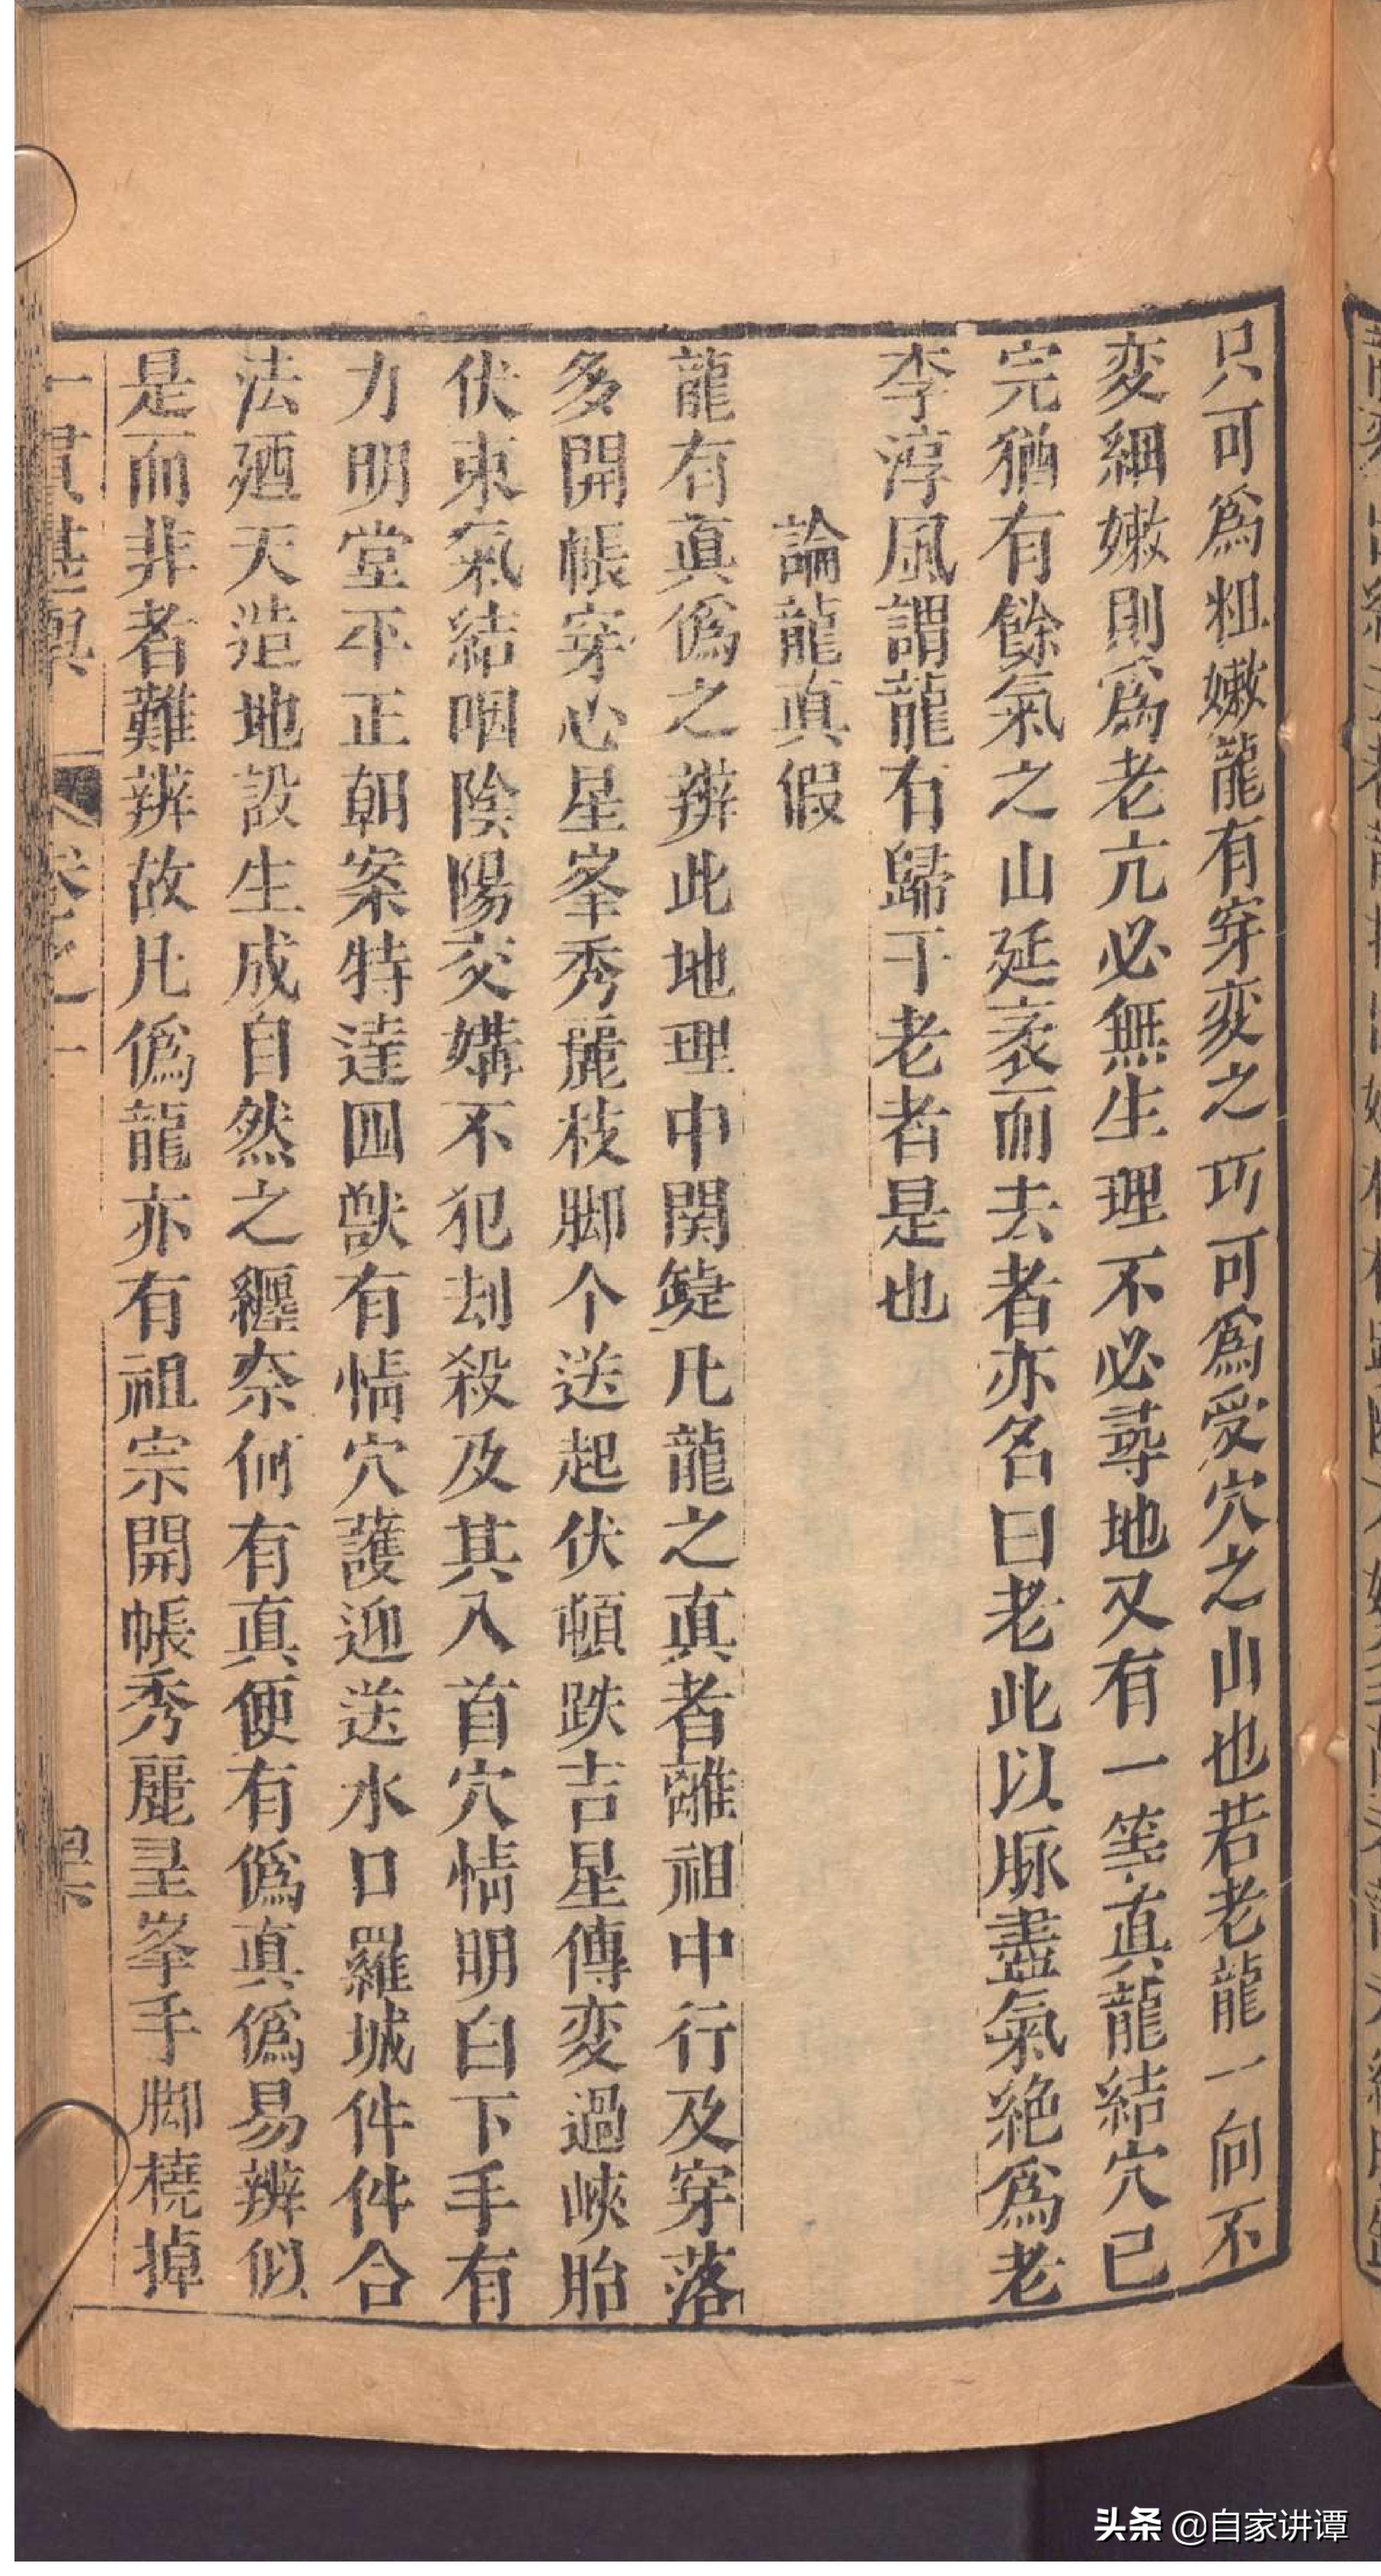 只可爲粗嫩龍有穿变之巧可爲受穴之山也若老龍一向不
变細嫩則爲老亢必無生理不必尋地又有一等真龍結穴已
完猶有餘氣之山延袤而去者亦名曰老此以脉盡氣絶爲老
李淳風謂龍有歸于老者是也
論龍真假
龍有真僞之辨此地理中関鍵凡龍之真者離祖中行及穿落
多開帳穿心星峯秀麗枝脚个送起伏頓跌吉星傳变過峽胎
伏束氣結咽陰陽交媾不犯刼殺及其入首穴情明白下手有
力明堂平正朝案特達四獸有情穴護迎送水口羅城件件合
法廼天造地設生成自然之纒奈何有真便有僞真僞易辨似
是而非者難辨故凡僞龍亦有祖宗開帳秀麗星峯手脚橈掉
一貫堪輿 卷之一
头条 @自家讲谭